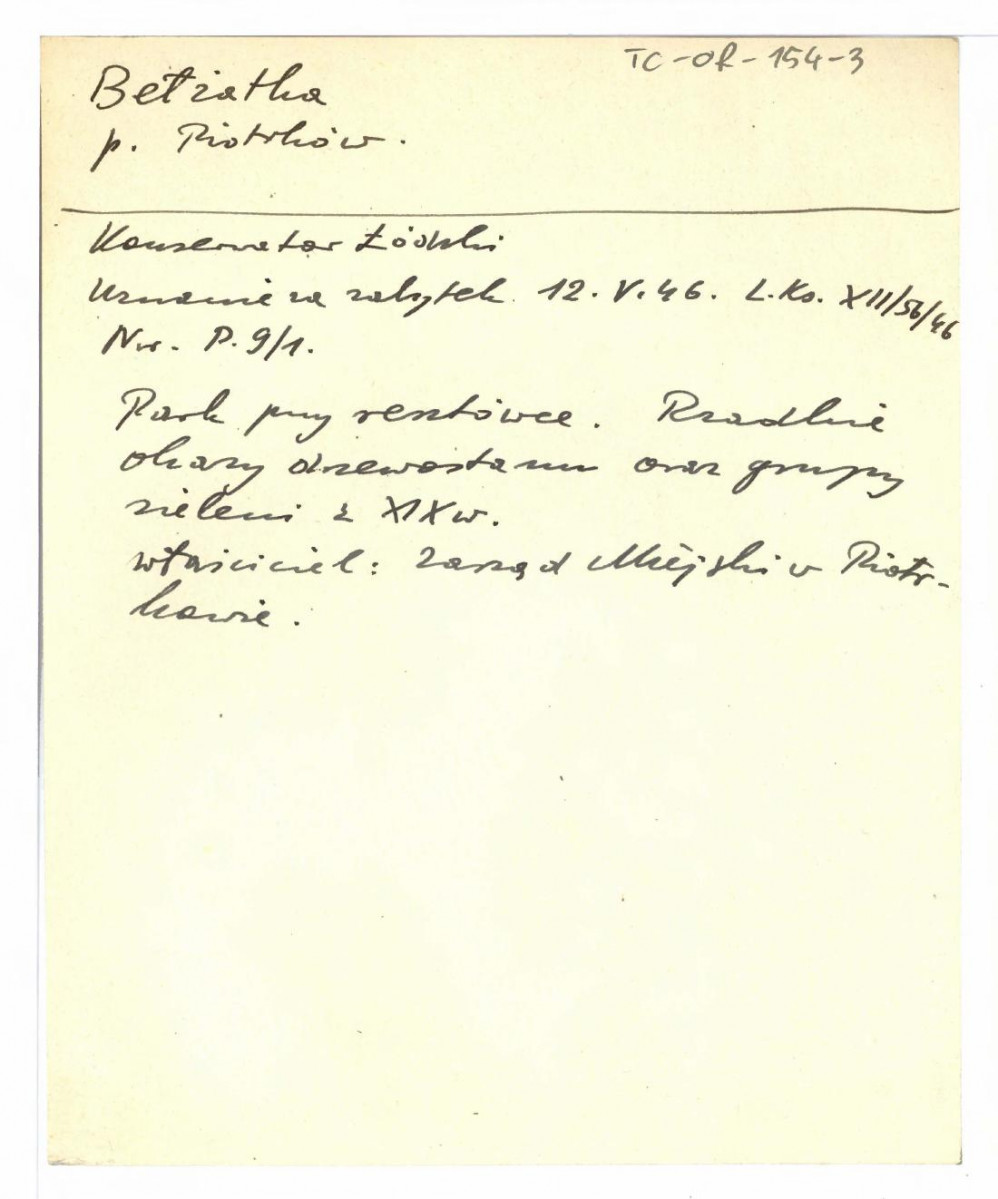 TC-OR-154-3
Bełzatka
p. Piotrków.
Konserwator Łódzki
Uznanie za zabytek 12. V. 46. L.Ks. XII/56/46
Nr. P. 9/1.
Park przy resztówce. Rzadkie
okazy drzewostanu oraz grupy
zieleni z XIX w.
właściciel: Zarząd Miejski w Piotr-
kowie.